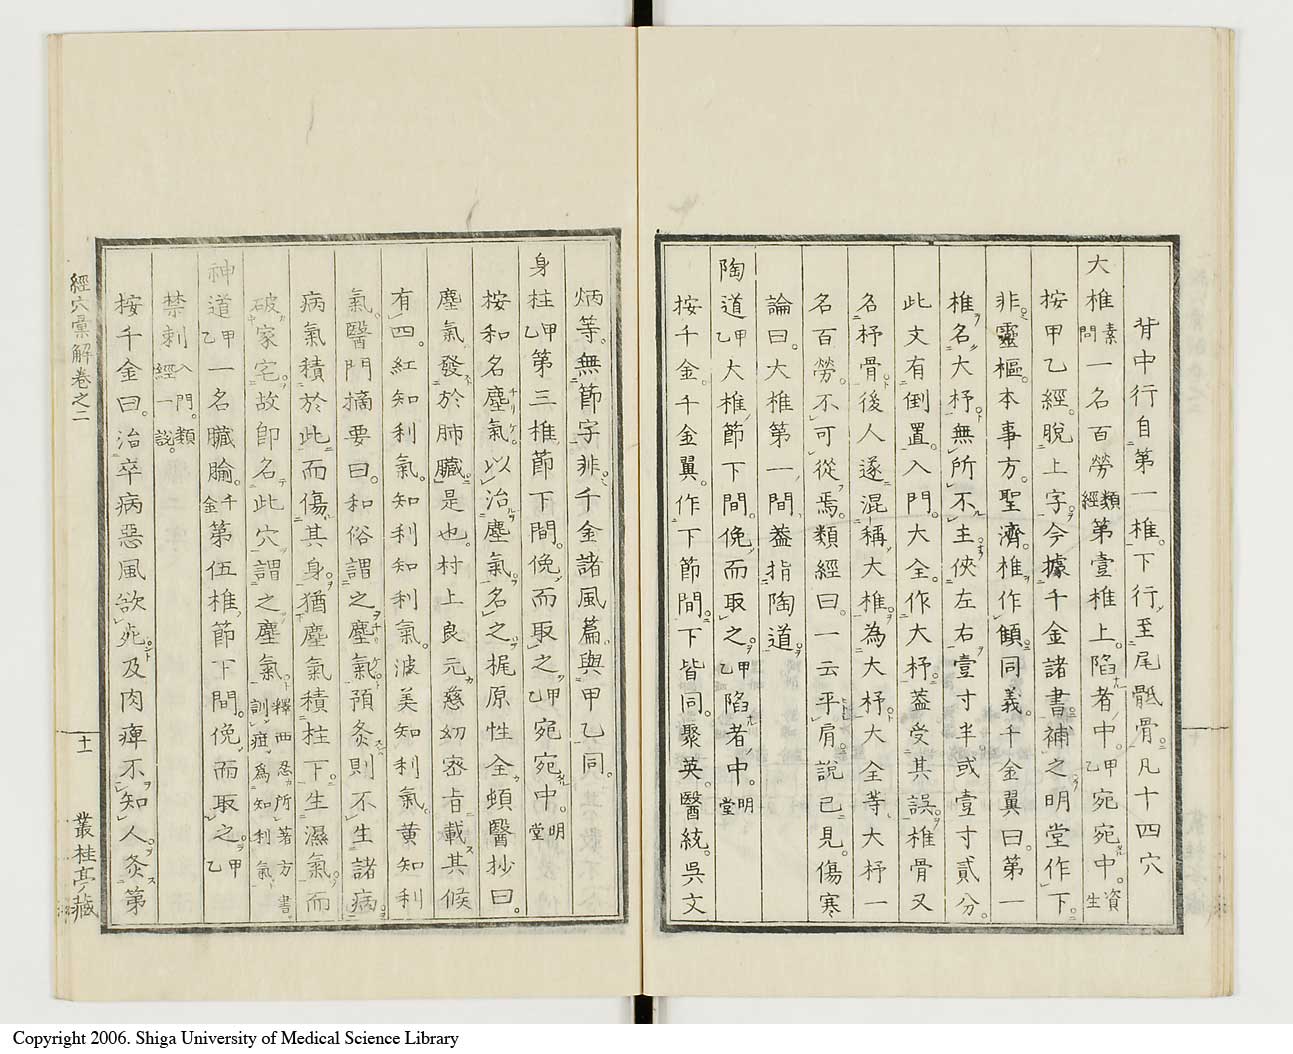 背中行自第一椎下行至尾骶骨凡十四穴
大椎素問一名百勞類經第壹椎上陷者中甲乙宛宛中資生
按甲乙經脫上字今據千金諸書補之明堂作下
非靈樞本事方聖濟椎作顀同義千金翼曰第一
椎名大杼無所不主俠左右壹寸半或壹寸貳分
此文有倒置入門大全作大杼蓋受其誤椎骨又
名杼骨後人遂混稱大椎為大杼大全等大杼一
名百勞不可從焉類經曰一云平肩說已見傷寒
論曰大椎第一間蓋指陶道
陶道甲乙大椎節下間俛而取之甲乙陷者中明堂
按千金千金翼作下節間下皆同聚英醫統吳文
炳等無節字非千金諸風篇與甲乙同
身柱甲乙第三椎節下間俛而取之甲乙宛宛中明堂
按和名塵氣以治塵氣名之梶原性全頓醫抄曰
塵氣發於肺臟是也村上良元慈幼密旨載其候
有四紅知利氣知利知利氣波美知利氣黃知利
氣醫門摘要曰和俗謂之塵氣預灸則不生諸病
病氣積於此而傷其身猶塵氣積柱下生濕氣而
破家宅故即名此穴謂之塵氣釋西忍所著方書訓疽為知利氣
神道甲乙一名臟腧千金第伍椎節下間俛而取之甲乙
禁刺入門類經一說
按千金曰治卒病惡風欲死及肉痺不知人灸第
經穴彙解卷之二
十一
叢桂亭藏
Copyright 2006. Shiga University of Medical Science Library